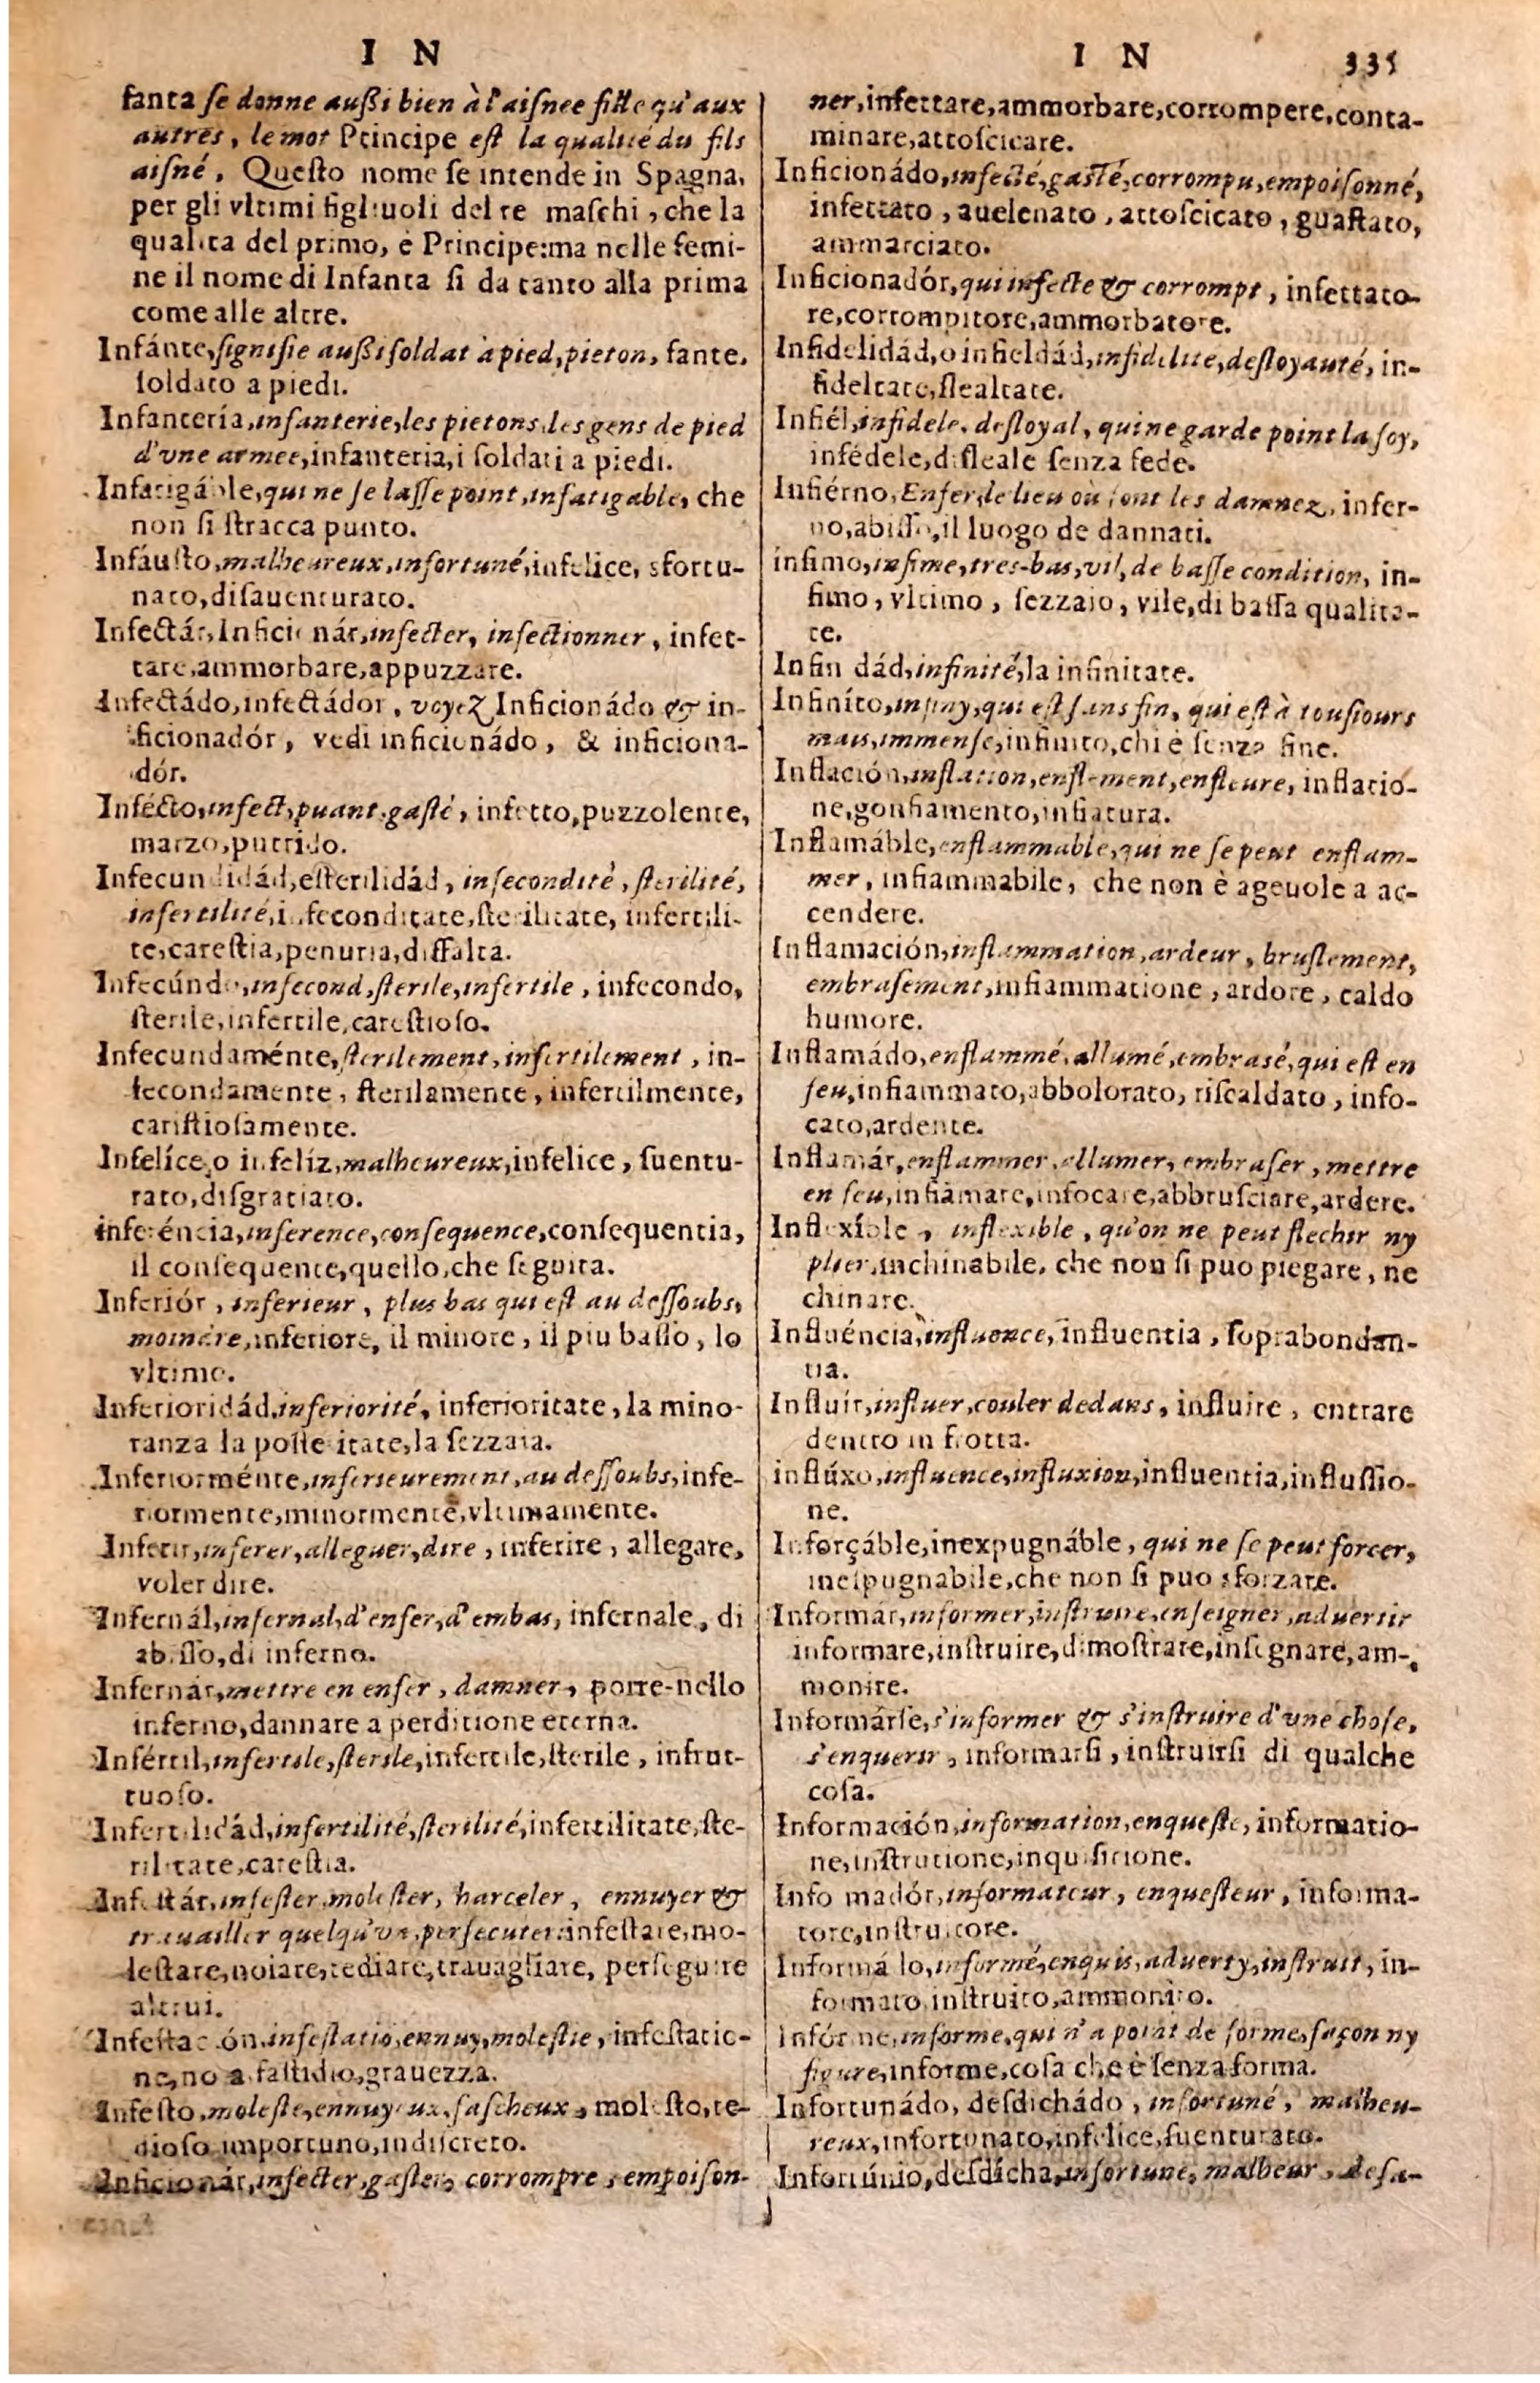 I N
fanta se donne außi bien à l'aisnee fille qu'aux
autres, le mot Principe est la qualité du fils
aisné. Questo nome se intende in Spagna,
per gli vltimi figliuoli del re maschi, che la
qualita del primo, è Principe:ma nelle femi-
ne il nome di Infanta si da tanto alla prima
come alle altre.
Infánte, signifie außi soldat à pied, pieton, fante,
soldato a piedi.
Infantería, infanterie, les pietons, les gens de pied
d'vne armee, infanteria, i soldati a piedi.
Infatigáble, qui ne se lasse point, infatigable, che
non si stracca punto.
Infáusto, malheureux, infortuné, infelice, sfortu-
nato, disauenturato.
Infectár, Inficionár, infecter, infectionner, infet-
tare, ammorbare, appuzzare.
Infectádo, infectádor, voyez Inficionádo & in-
ficionadór, vedi inficionádo, & inficiona-
dór.
Infécto, infect, puant, gasté, infetto, puzzolente,
marzo, putrido.
Infecundidád, esterilidád, infecondité, sterilité,
infertilité, infeconditate, sterilitate, infertili-
te, carestia, penuria, diffalta.
Infecúndo, infecond, sterile, infertile, infecondo,
sterile, infertile, carestioso.
Infecundaménte, sterilement, infertilement, in-
fecondamente, sterilamente, infertilmente,
caristiosamente.
Infelíce, o infelíz, malheureux, infelice, suentu-
rato, disgratiato.
inferéncia, inference, consequence, consequentia,
il consequente, quello, che seguita.
Inferiór, inferieur, plus bas qui est au dessoubs,
moindre, inferiore, il minore, il piu basso, lo
vltimo.
Inferioridád, inferiorité, inferioritate, la mino-
ranza la posteritate, la sezzaia.
Inferiorménte, inferieurement, au dessoubs, infe-
riormente, minormente, vltimamente.
Inferir, inferer, alleguer, dire, inferire, allegare,
voler dire.
Infernál, infernal, d'enfer, d'embas, infernale, di
abisso, di inferno.
Infernár, mettre en enfer, damner, porre nello
inferno, dannare a perditione eterna.
Infértil, infertile, sterile, infertile, sterile, infrut-
tuoso.
Infertilidád, infertilité, sterilité, infertilitate, ste-
rilitate, carestia.
Infestár, infester, molester, harceler, ennuyer &
trauailler quelqu'vn, persecuter: infestare, mo-
lestare, noiare, tediare, trauagliare, perseguire
altrui.
Infestación, infestatiō, ennuy, molestie, infestatio-
ne, noia fastidio, grauezza.
Infesto, moleste, ennuyeux, fascheux, molesto, te-
dioso importuno, indiscreto.
Inficionár, infecter, gaster, corrompre, empoison-
I N 335
ner, infettare, ammorbare, corrompere, conta-
minare, attoscicare.
Inficionádo, infecté, gasté, corrompu, empoisonné,
infettato, auelenato, attoscicato, guastato,
ammarciato.
Inficionadór, qui infecte & corrompt, infettato-
re, corrompitore, ammorbatore.
Infidelidád, o infieldád, infidelité, desloyauté, in-
fideltate, slealtate.
Infiél, infidele, desloyal, qui ne garde point la foy,
infédele, disleale senza fede.
Infiérno, Enfer, le lieu où sont les damnez, infer-
no, abisso, il luogo de dannati.
infimo, infime, tres-bas, vil, de basse condition, in-
fimo, vltimo, sezzaio, vile, di bassa qualita-
te.
Infinidád, infinité, la infinitate.
Infiníto, infiny, qui est sans fin, qui est à tousiours
mais, immense, infinito, chi è senza fine.
Inflación, inflation, enflement, enfleure, inflatio-
ne, gonfiamento, infiatura.
Inflamáble, enflammable, qui ne se peut enflam-
mer, infiammabile, che non è ageuole a ac-
cendere.
Inflamación, inflammation, ardeur, bruslement,
embrasement, infiammatione, ardore, caldo
humore.
Inflamádo, enflammé, allumé, embrasé, qui est en
feu, infiammato, abbolorato, riscaldato, info-
cato, ardente.
Inflamár, enflammer, allumer, embraser, mettre
en feu, infiāmare, infocare, abbrusciare, ardere.
Inflexíble, inflexible, qu'on ne peut flechir ny
plier, inchinabile, che non si puo piegare, ne
chinare.
Influéncia, influence, influentia, soprabondan-
tia.
Influír, influer, couler dedans, influire, entrare
dentro in frotta.
inflúxo, influence, influxion, influentia, influssio-
ne.
Inforçáble, inexpugnáble, qui ne se peut forcer,
inespugnabile, che non si puo sforzare.
Informár, informer, instruire, enseigner, aduertir
informare, instruire, dimostrare, insegnare, am-
monire.
Informárse, s'informer & s'instruire d'vne chose,
s'enquerir, informarsi, instruirsi di qualche
cosa.
Información, information, enqueste, informatio-
ne, instrutione, inquisitione.
Informadór, informateur, enquesteur, informa-
tore, instrutore.
Informádo, informé, enquis, aduerty, instruit, in-
formato, instruito, ammonito.
Infórme, informe, qui n'a point de forme, façon ny
figure, informe, cosa che è senza forma.
Infortunádo, desdichádo, infortuné, malheu-
reux, infortunato, infelice, suenturato.
Infortúnio, desdícha, infortune, malheur, desa-